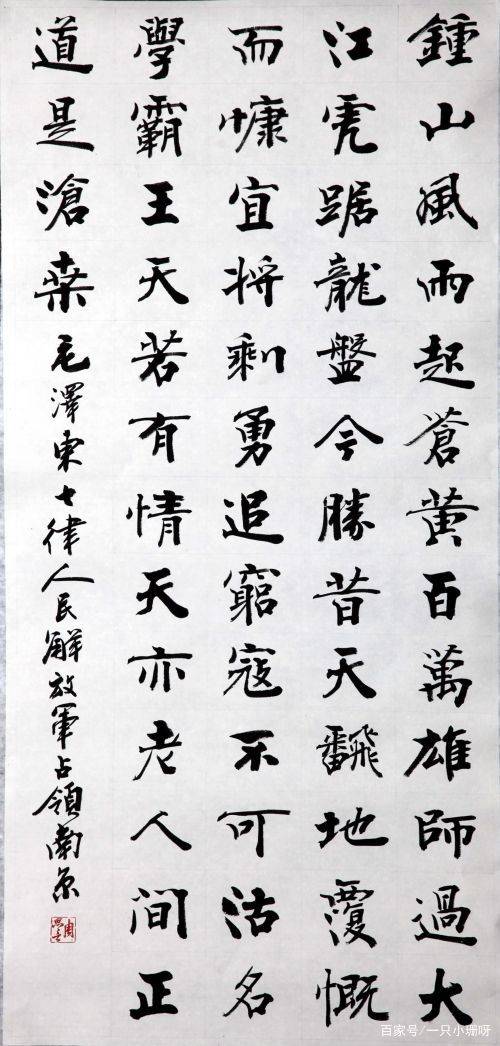 鍾山風雨起蒼黄百萬雄師過大
江虎踞龍盤今勝昔天飜地覆慨
而慷宜將剩勇追窮寇不可沽名
學霸王天若有情天亦老人間正
道是滄桑毛澤東七律人民解放軍占領南京
百家号/一只小珊呀